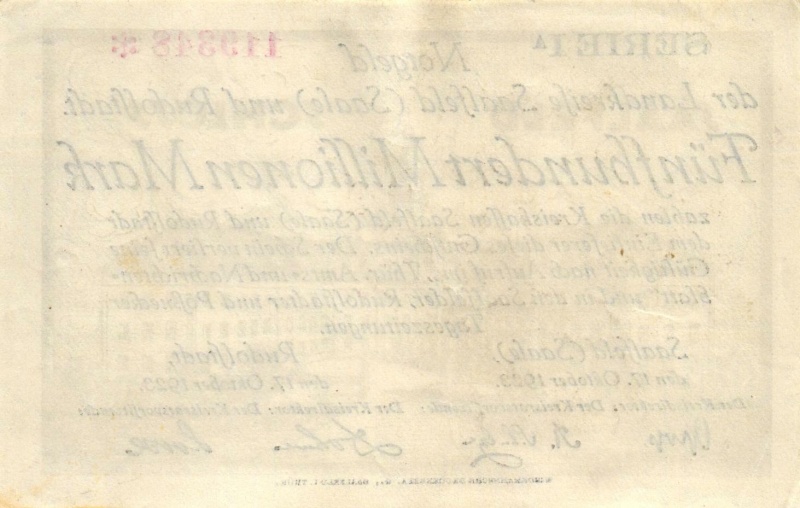 SERIE 1A 119348 *
Notgeld
der Landkreiſe Saalfeld (Saale) und Rudolſtadt.
Fünfhundert Millionen Mark
zahlen die Kreiskaſſen Saalfeld (Saale) und Rudolſtadt
dem Einlieferer dieſes Gutſcheins. Der Schein verliert ſeine
Gültigkeit nach Aufruf im „Thür. Amts- und Nachrichten-
blatt“ und in den Saalfelder, Rudolſtadter und Pößnecker
Tageszeitungen.
Saalfeld (Saale) Rudolſtadt,
den 17. Oktober 1923. den 17. Oktober 1923.
Der Kreisdirektor: Der Kreisvorſitzende: Der Kreisdirektor: Der Kreisvorſitzende:
SAALFELD I. THÜR.